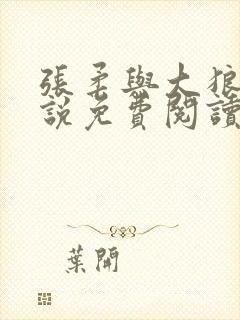 張柔與大狼
說免費閱讀
葉開